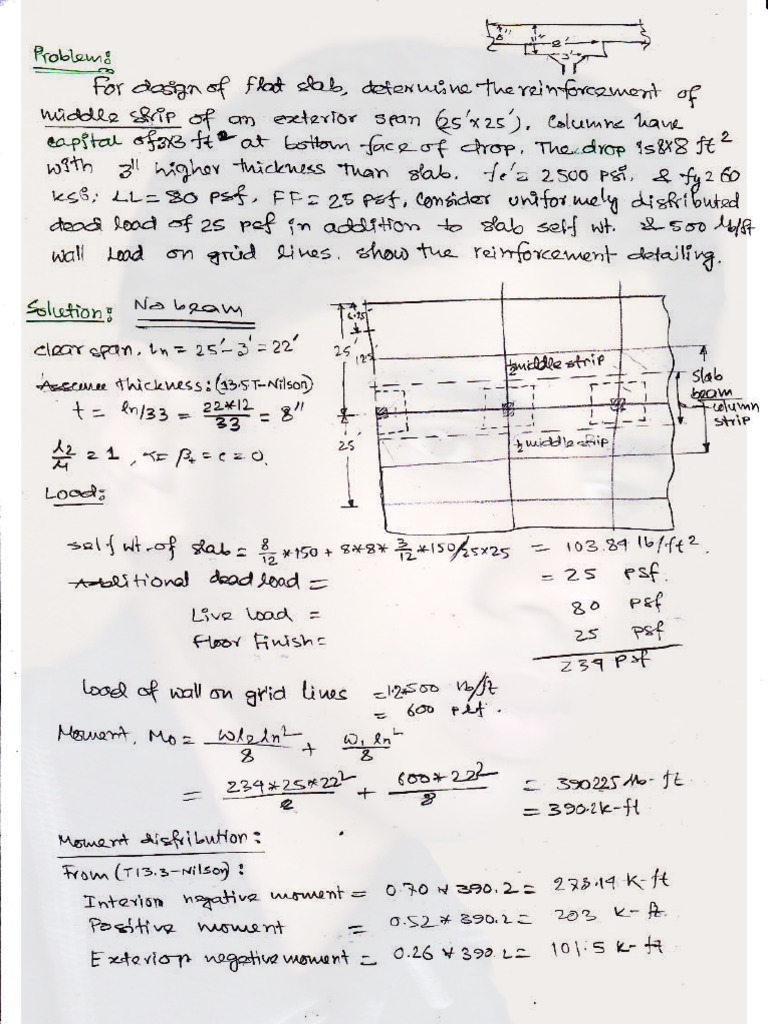 8" 11"
8'
3'
Problem:
For design of flat slab, determine the reinforcement of
middle strip of an exterior span (25'x25'). Columns have
capital of 3x3 ft² at bottom face of drop. The drop is 8x8 ft²
with 3" higher thickness than slab. fc'= 2500 psi, & fy= 60
ksi; LL= 80 psf, FF= 25 psf, Consider uniformely distributed
dead load of 25 psf in addition to slab self wt. & 500 lb/ft
wall load on grid lines. show the reinforcement detailing.
Solution: No beam
clear span, ln = 25'-3' = 22'
Assume thickness: (13.5T-Nilson)
t = ln/33 = 22*12/33 = 8"
l2/l1 = 1, α = βt = c = 0.
Load:
6.25'
25'
12.5'
25'
½ middle strip
½ middle strip
slab
beam
column
strip
self wt. of slab = 8/12 *150 + 8*8* 3/12 *150/25x25 = 103.84 lb/ft².
Additional dead load = = 25 psf.
Live Load = 80 psf
Floor Finish = 25 psf
234 psf
Load of wall on grid lines = 1.2*500 lb/ft
= 600 plf.
Moment, Mo = Wl2ln²/8 + W1 ln²/8
= 234*25*22²/8 + 600*22²/8 = 390225 lb-ft
= 390.2 k-ft
Moment disfribution:
From (T13.3-Nilson):
Interior negative moment = 0.70 * 390.2 = 273.14 K-ft
Positive moment = 0.52 * 390.2 = 203 K-ft
Exterior negative moment = 0.26 * 390.2 = 101.5 k-ft